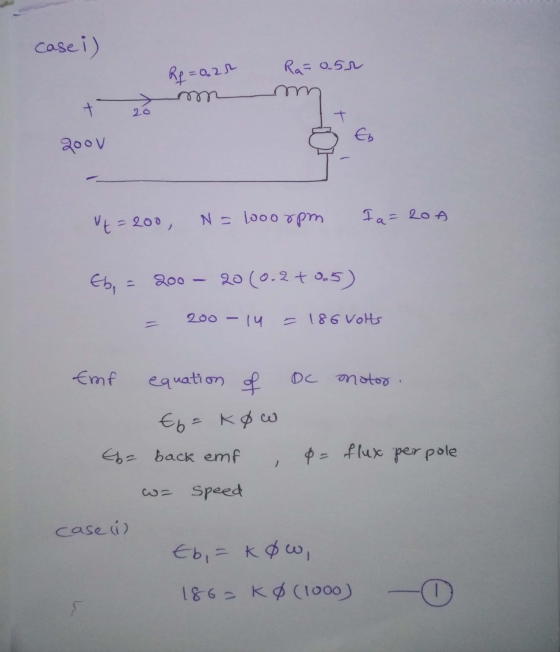 case i)
Rf = 0.2Ω Ra = 0.5Ω
+ 20 +
200V Eb
- -
Vt = 200, N = 1000 rpm Ia = 20 A
Eb1 = 200 - 20 (0.2 + 0.5)
= 200 - 14 = 186 Volts
Emf equation of DC motor.
Eb = KϕW
Eb = back emf , ϕ = flux per pole
ω = speed
case (i)
Eb1 = Kϕω1
186 = Kϕ (1000) — ①